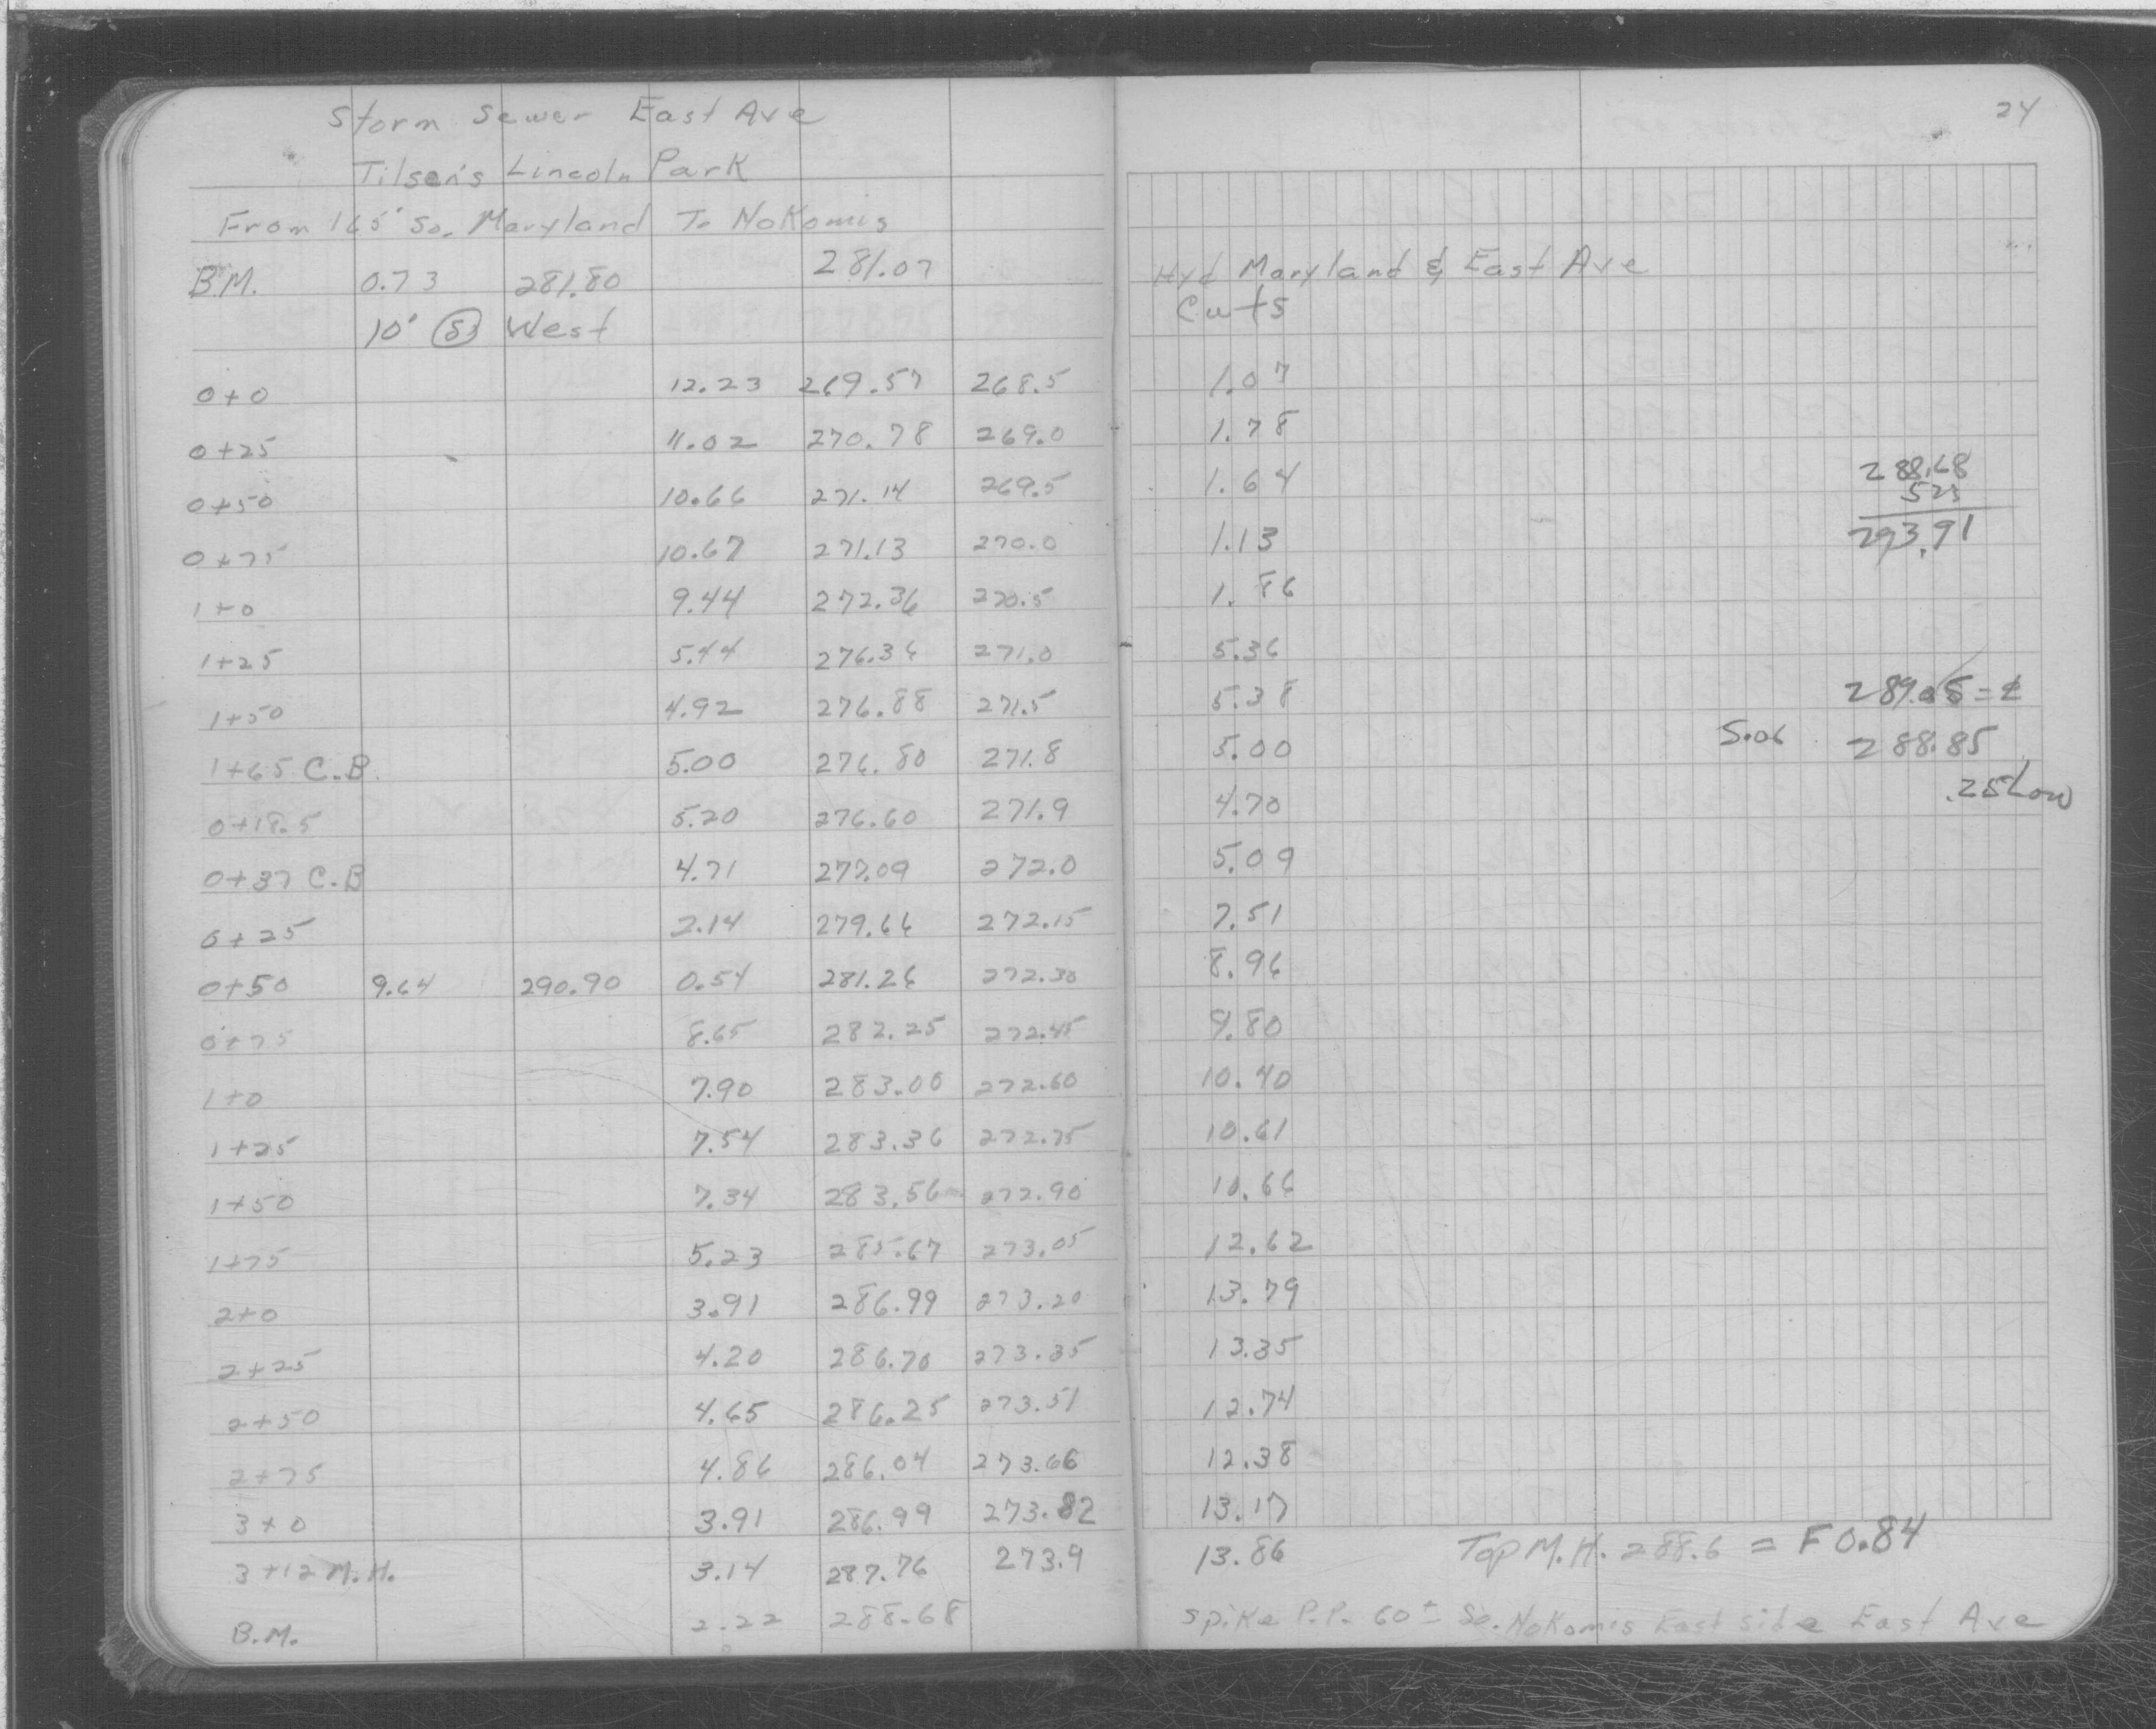 24
Storm Sewer East Ave
Tilsen's Lincoln Park
From 165' So. Maryland To Nokomis
B.M. 0.73 281.80 281.07 Hyd Maryland & East Ave
10' West Cuts
0+0 12.23 269.57 268.5 1.07
0+25 11.02 270.78 269.0 1.78
0+50 10.66 271.14 269.5 1.64
0+75 10.67 271.13 270.0 1.13
1+0 9.44 272.36 270.5 1.86
1+25 5.44 276.36 271.0 5.36
1+50 4.92 276.88 271.5 5.38
1+65 C.B. 5.00 276.80 271.8 5.00
0+18.5 5.20 276.60 271.9 4.70
0+37 C.B 4.71 277.09 272.0 5.09
0+25 2.14 279.66 272.15 7.51
0+50 9.64 290.90 0.54 281.26 272.30 8.96
0+75 8.65 282.25 272.45 9.80
1+0 7.90 283.00 272.60 10.40
1+25 7.54 283.36 272.75 10.61
1+50 7.34 283.56 272.90 10.66
1+75 5.23 285.67 273.05 12.62
2+0 3.91 286.99 273.20 13.79
2+25 4.20 286.70 273.35 13.35
2+50 4.65 286.25 273.51 12.74
2+75 4.86 286.04 273.66 12.38
3+0 3.91 286.99 273.82 13.17
3+12 M.H. 3.14 287.76 273.9 13.86 Top M.H. 288.6 = F 0.84
B.M. 2.22 288.68 Spike P.P. 60± So. Nokomis East side East Ave
288.68
523
293.91
5.06 288.85
.25 Low